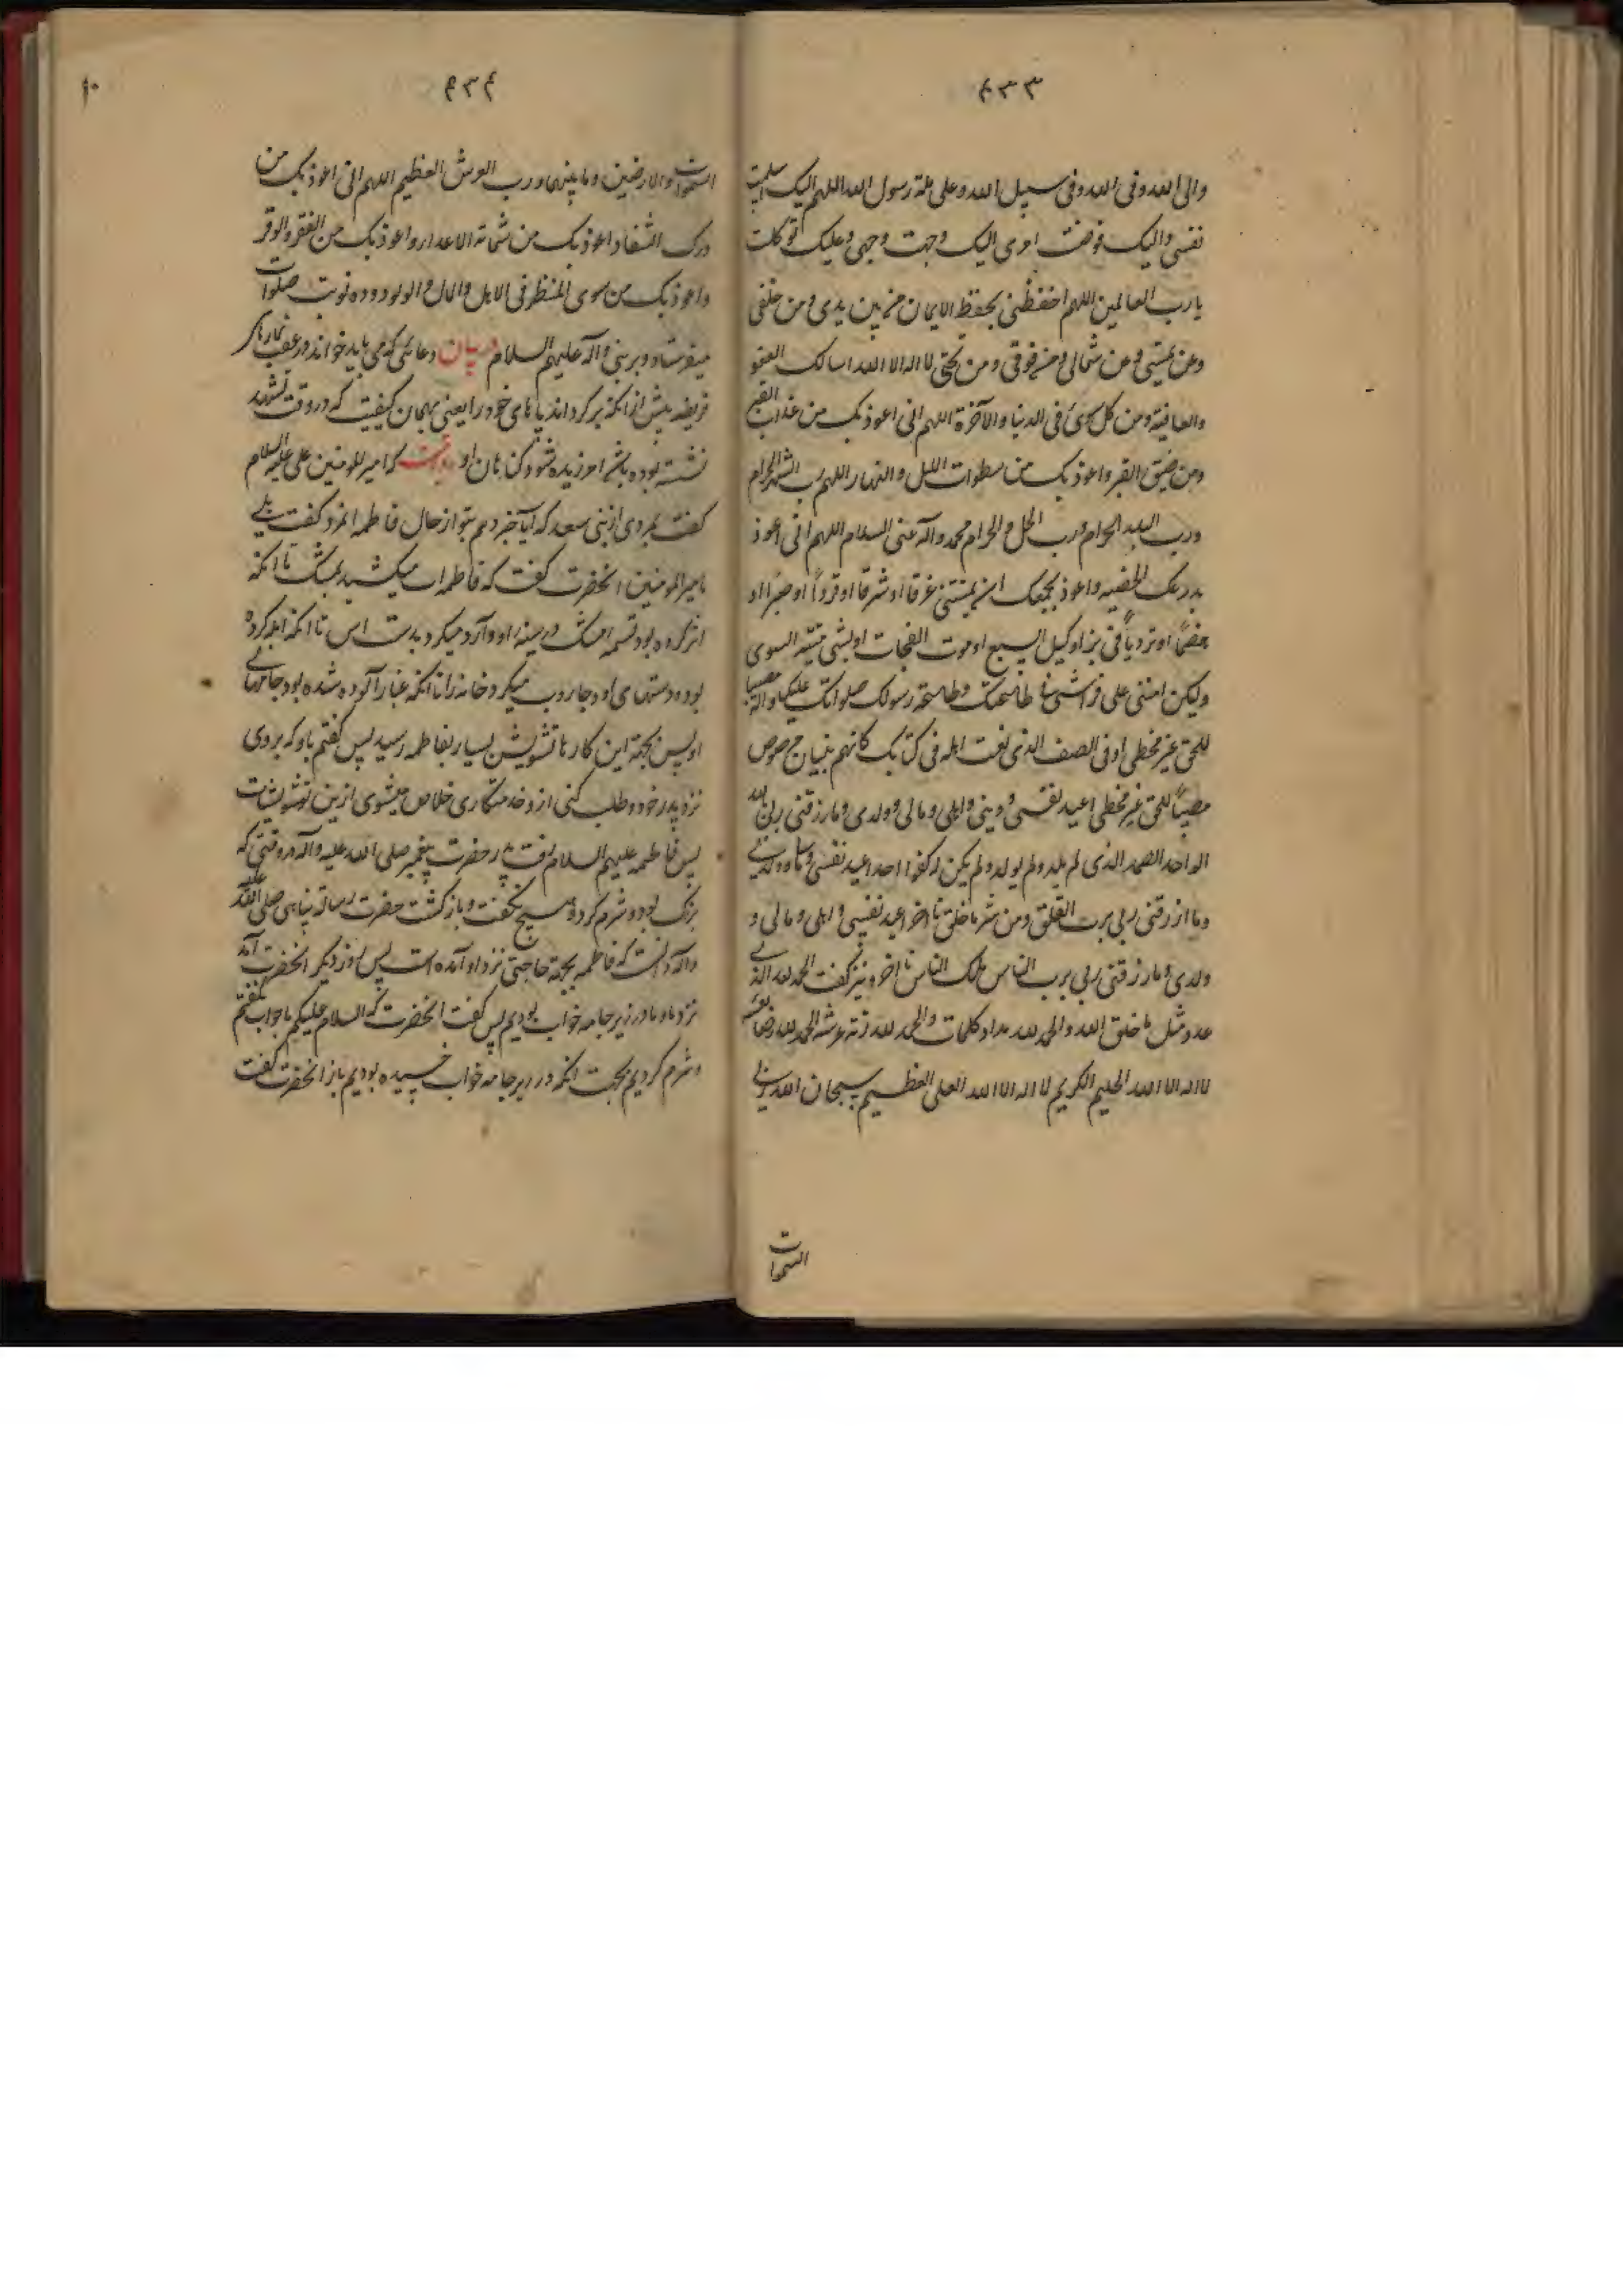 ۴۳۳
والی الله وفی الله وفی سبیل الله وعلی ملة رسول الله اللهم الیک اسلمت
نفسی والیک فوضت امری الیک وجهت وجهی وعلیک توکلت
یا رب العالمین اللهم احفظنی بحفظ الایمان من بین یدی ومن خلفی
وعن یمینی وعن شمالی ومن فوقی ومن تحتی لا اله الا الله اسالک العفو
والعافیة ومن کل سوی فی الدنیا والآخرة اللهم انی اعوذ بک من عذاب القبر
ومن ضیق القبر واعوذ بک من سطوات اللیل والنهار اللهم رب الشهر الحرام
ورب البلد الحرام ورب الحل والحرام محمد وآله عنی السلام اللهم انی اعوذ
بدرعک الحصینه واعوذ بجمعک ان یمیتنی غرقا او شرقا او قودا او صبرا او
هضما او تردیا فی بئر او اکیل السبع او موت الفجات او بشی میتة السوی
ولیکن امتنی علی فراشی فی طاعتک وطاعة رسولک صلواتک علیه وآله مصیبا
للحق غیر مخطی او فی الصف الذی نعت اهله فی کتابک کانهم بنیان مرصوص
مصیبا للحق غیر مخطی اعیذ نفسی ودینی واهلی ومالی وولدی وما رزقنی ربی بالله
الواحد الصمد الذی لم یلد ولم یولد ولم یکن له کفوا احد اعیذ نفسی ومالی وولدی
وما رزقنی ربی برب الفلق ومن شر ما خلق تا آخر اعیذ نفسی واهلی ومالی و
ولدی وما رزقنی ربی برب الناس ملک الناس تا آخر ونیز گفت الحمد لله الذی
عدد مثل ما خلق الله والحمد لله مداد کلمات والحمد لله زنة عرشه الحمد لله رضا نفسه
لا اله الا الله الحلیم الکریم لا اله الا الله العلی العظیم سبحان الله ربی
السموات
۴۳۴
۴۰
السموات والارضین وما بینهما ورب العرش العظیم اللهم انی اعوذ بک من
درک الشقاء واعوذ بک من شماتة الاعداء واعوذ بک من الفقر والوقر
واعوذ بک من سوی المنظر فی الاهل والمال والولد وده نوبت صلوات
میفرستاد وبر نبی وآله علیهم السلام دربیان دعائی که می باید خواند در عقب نمازهای
فریضه پیش از آنکه بر گرداند پاهای خود را یعنی بهمان کیفیت که در وقت تشهد
نشسته بوده باشد آمرزیده شود گناهان او روایت که امیر المومنین علی علیه السلام
گفت بمردی از بنی سعد که آیا خبر دهم بتو از حال فاطمه آنمرد گفت بلی
یا امیر المومنین آنحضرت گفت که فاطمه آب میکشید بمشک تا آنکه
اثر کرده بود تسمه مشک در سینه او وآرد میکرد بدست آس تا آنکه آبله کرده
بود دستهای او وجاروب میکرد خانه را تا آنکه غبار آلوده شده بود جامهای
او پس بجهة این کارها تشویش بسیار بفاطمه رسید پس گفتم باو که بروی
نزد پدر خود وطلب کنی از وخدمتکاری خلاص میشوی ازین تشویشات
پس فاطمه علیهم السلام رفت پدر حضرت پیغمبر صلی الله علیه وآله در وقتی که
بزرک بود وشرم کرد وهیچ نگفت وباز گشت حضرت رسالة پناهی صلی الله علیه
وآله دانست که فاطمه بجهة حاجتی نزد او آمده است پس روز دیگر آنحضرت آمد
نزد ما وما در زیر جامه خواب بودیم پس گفت آنحضرت که السلام علیکم ما جواب نگفتم
وشرم کردیم بجهت آنکه در زیر جامه خواب خسپیده بودیم باز آنحضرت گفت